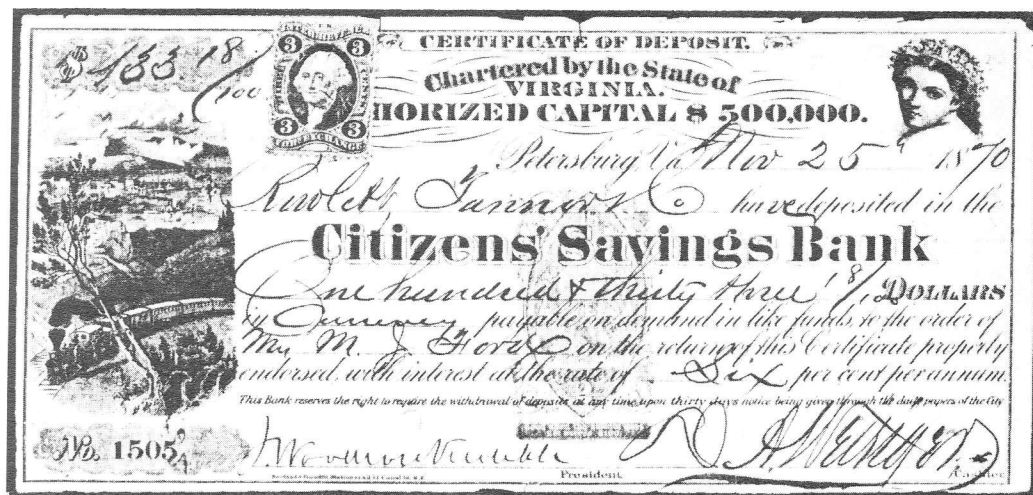 $ 133 18/100
U.S. INTER. REV.
3 3
THREE CENTS
3 3
FOREIGN EXCHANGE
CERTIFICATE OF DEPOSIT.
Chartered by the State of
VIRGINIA.
HORIZED CAPITAL $ 500,000.
Petersburg, Va. Nov 25 1870
Rowlett, Tanner & Co have deposited in the
Citizens' Savings Bank
One hundred & thirty three 18/100 DOLLARS
in Currency payable on demand in like funds, to the order of
M. J. on the return of this Certificate properly
endorsed, with interest at the rate of Six per cent per annum.
This Bank reserves the right to require the withdrawal of deposits at any time upon thirty days notice being given through the daily papers of the City
No. 1505
President
Cashier